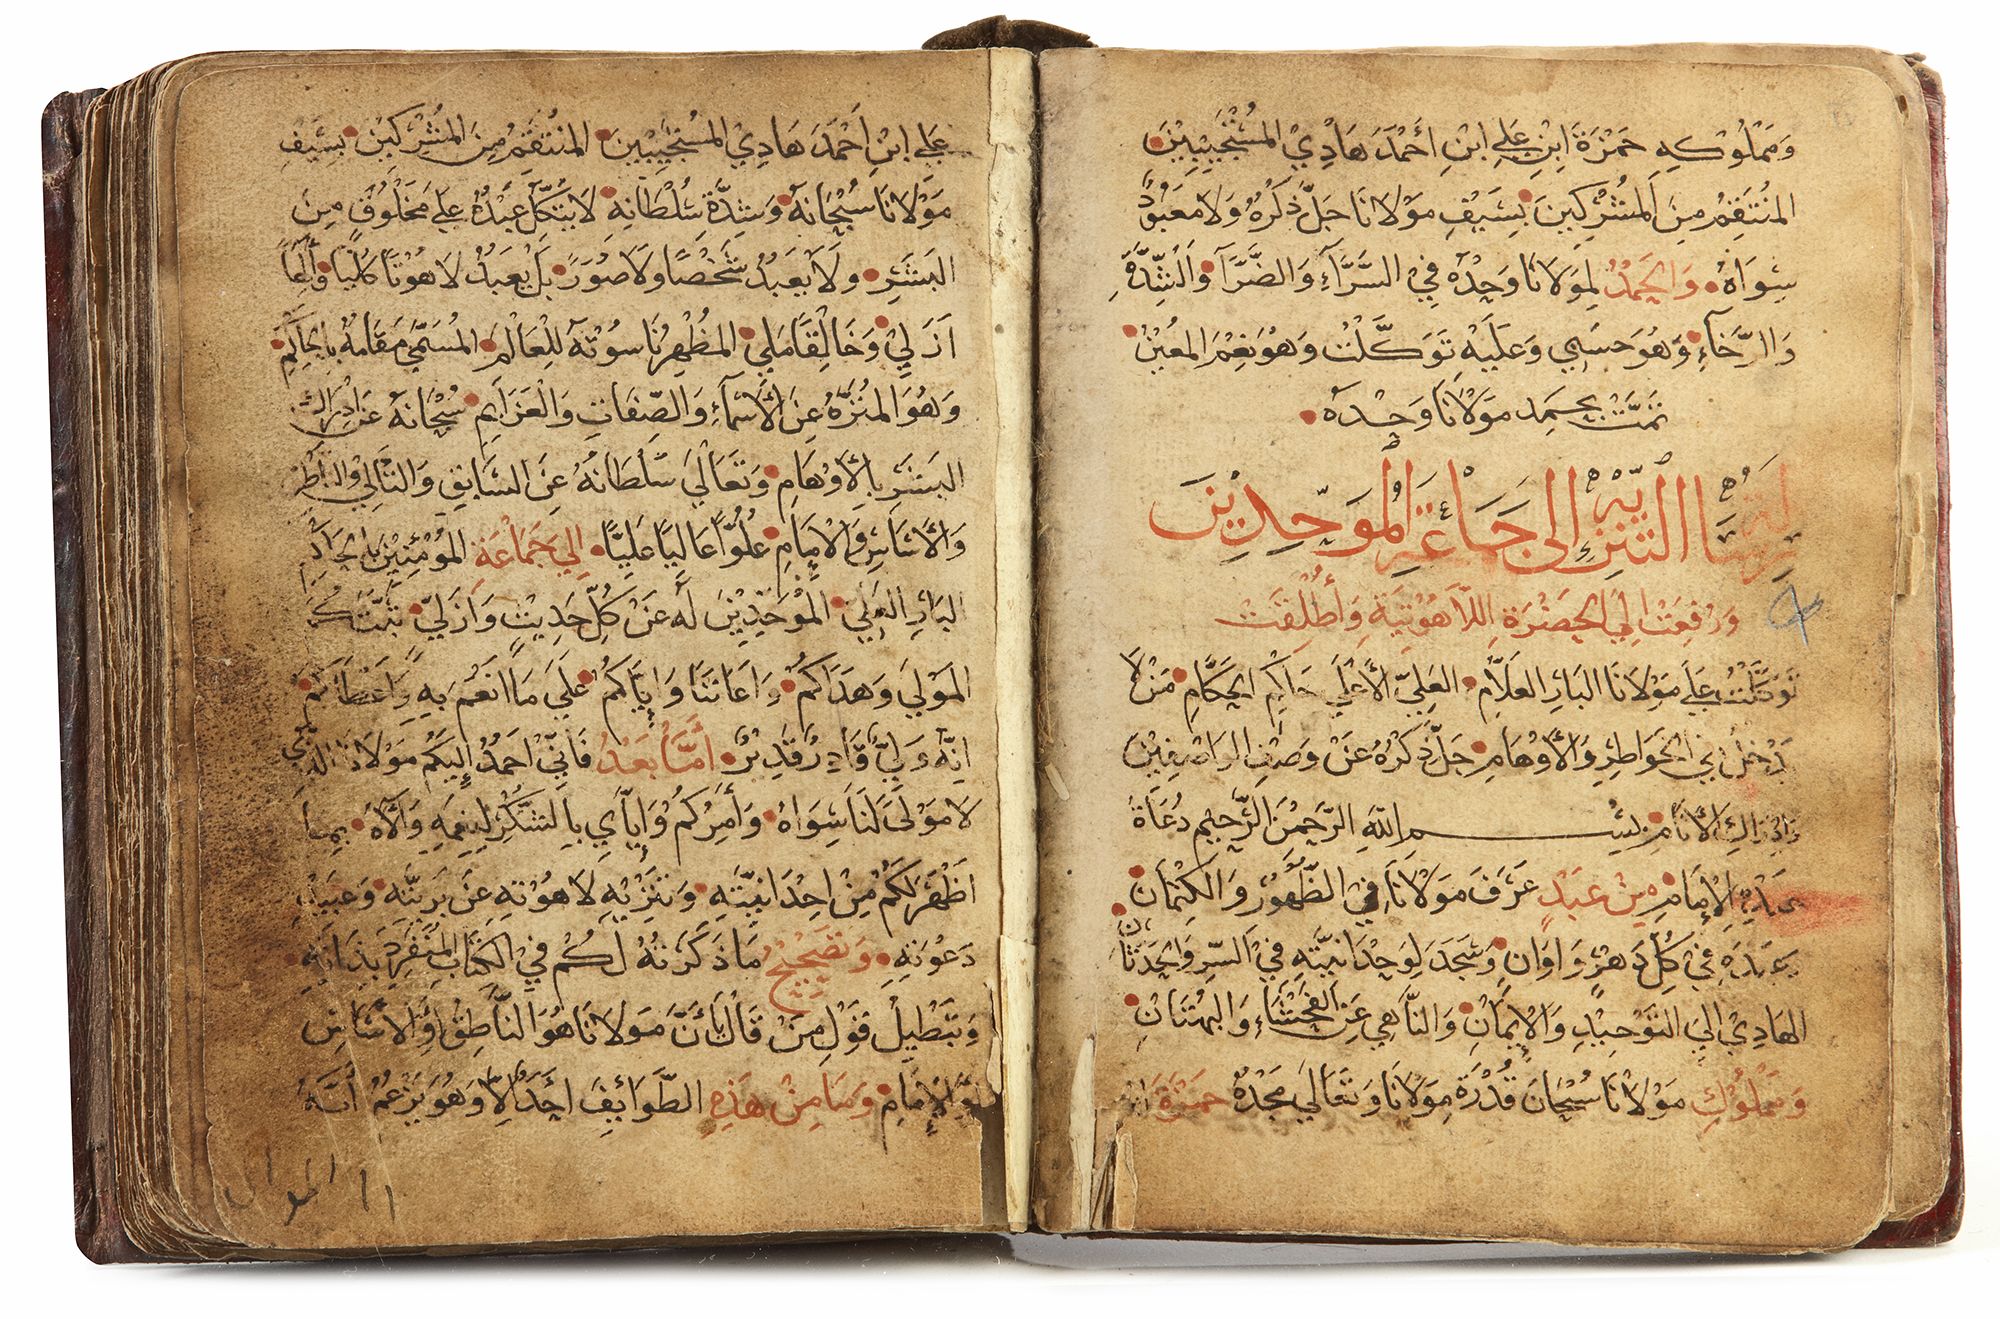 وَمَمْلُوكِهِ حَمْزَةَ ابْنِ عَلِي ابْنِ أَحْمَدَ هَادِيْ المُسْتَجِيْبِيْنَ
المُنْتَقِمُ مِنَ المُشْرِكِيْنَ بِسَيْفِ مَوْلَانَا جَلَّ ذِكْرُهُ وَلَا مَعْبُودٌ
سِوَاهُ وَالْحَمْدُ لِمَوْلَانَا وَحْدَهُ فِي السَّرَّآءِ وَالضَّرَّآءِ وَالشِّدَّةِ
وَالرَّخَاءِ وَهُوَ حَسْبِي وَعَلَيْهِ تَوَكَّلْتُ وَهُوَ نِعْمَ المُعِيْنْ
تَمَّتْ بِحَمِد مَوْلَانَا وَحْدَهُ
إلى جَمَاعَةِ المُوَحِّدِيْنَ
وَرُفِعَتْ إِلَي الْحَضْرَةِ اللَّاهُوتِيَةِ وَأُطْلِقَتْ
تَوَكَّلْتُ عَلَي مَوْلَانَا البَارِ العَلَّامِ العَلِيِّ الأَعْلَي حَاكِمِ الْحُكَّامِ مَنْ لَا
يَدْخُلُ فِي الْخَوَاطِرِ وَالأَوْهَامِ جَلَّ ذِكْرُهُ عَنْ وَصْفِ الوَاصِفِيْنَ
وَإِدْرَاكِ الأَنَامِ بِسْمِ اللهِ الرَّحْمٰنِ الرَّحِيْمِ دُعَاةُ
الإِمَامِ مِنْ عَبْدٍ عَرَفَ مَوْلَانَا فِي الظُّهُوْرِ وَالكِتْمَانِ
عَبَدَهُ فِيْ كُلِّ دَهْرٍ وَأَوَانٍ وَسَجَدَ لِوَحْدَانِيَّتِهِ فِيْ السِّرِ وَالْحَدَثَانْ
الهَادِيْ إِلَى التَّوْحِيْدِ وَالإِيْمَانِ وَالنَّاهِي عَنِ الفَحْشَاءِ وَالبُهْتَانْ
وَمَمْلُوْكِ مَوْلَانَا سُبْحَانَ قُدْرَةِ مَوْلَانَا وَتَعَالَي مَجْدُهُ حَمْزَةَ ابْنِ
عَلِي ابْنِ أَحْمَدَ هَادِيْ المُسْتَجِيْبِيْنَ المُنْتَقِمُ مِنَ المُشْرِكِيْنَ بِسَيْفِ
مَوْلَانَا سُبْحَانَهُ وَشِدَّةِ سُلْطَانِهِ لَا يَتَّكِلُ عَبْدُهُ عَلَي مَخْلُوْقٍ مِنَ
البَشَرِ وَلَا يَعْبُدُ شَخْصًا وَلَا صُوَرَ بَلْ يَعْبُدُ لَاهُوْتًا كُلِّيًا
أَزَلِيْ وَخَالِقًا المُظْهِرُ نَاسُوْتَهُ لِلْعَالَمِ المُسَمَّى مَقَامُهُ بِالْحَاكِمِ
وَهُوَ المُنَزَّهُ عَنِ الأَسْمَآءِ وَالصِّفَاتِ وَالْعَزَايِمِ سُبْحَانَهُ عَنْ إِدْرَاكِ
البَشَرِ بِالأَوْهَامِ وَتَعَالَي سُلْطَانُهُ عَنِ السَّابِقِ وَالتَّالِيْ وَالنَّاطِقِ
وَالأَسَاسِ وَالإِمَامِ عُلُوًّا عَالِيًا عَلِيًّا إِلَي جَمَاعَةِ المُؤْمِنِيْنَ بِالْحَاكِمِ
البَارِ العَلِي المُوَحِّدِيْنَ لَهُ عَنْ كُلِّ حَدِيْثٍ وَأَزَلِيّ ثَبَّتَكُمُ
المَوْلَي وَهَدَاكُمْ وَأَعَانَنَا وَإِيَّاكُمْ عَلَي مَا أَنْعَمَ بِهِ وَأَعْطَاكُمْ
إِنَّهُ وَلِيّ قَادِرْ قَدِيْرْ أَمَّا بَعْدُ فَانِّيْ أَحْمَدُ إِلَيْكُمْ مَوْلَانَا الَّذِيْ
لَا مَوْلَى لَنَا سِوَاهُ وَأَمَرَكُمْ وَإِيَّايَ بِالشُّكْرِ لِنِعَمِهِ وَآلَاهُ بِمَا
أَظْهَرَ لَكُمْ مِنْ احْدَانِيَّتِهِ وَتَنْزِيْهِ لَاهُوْتِهِ عَنْ بَرِيَّتِهِ وَعَبِيْدِ
دَعْوَتِهِ وَتَصْحِيْحِ مَا ذَكَرْتُهُ لَكُمْ فِي الكِتَابِ المُنْفَرِدِ بِذَاتِهِ
وَتَبْطِيْلُ قَوْلِ مِنْ قَالَ بَأَنَّ مَوْلَانَا هُوَ النَّاطِقْ أَوِ الأَسَاسْ
أَوِ الإِمَامِ وَمَا مِنْ هَذِهِ الطَّوَائِفِ أَحَدٌ إِلَّا وَهُوَ يَزْعُمُ أَنَّهُ